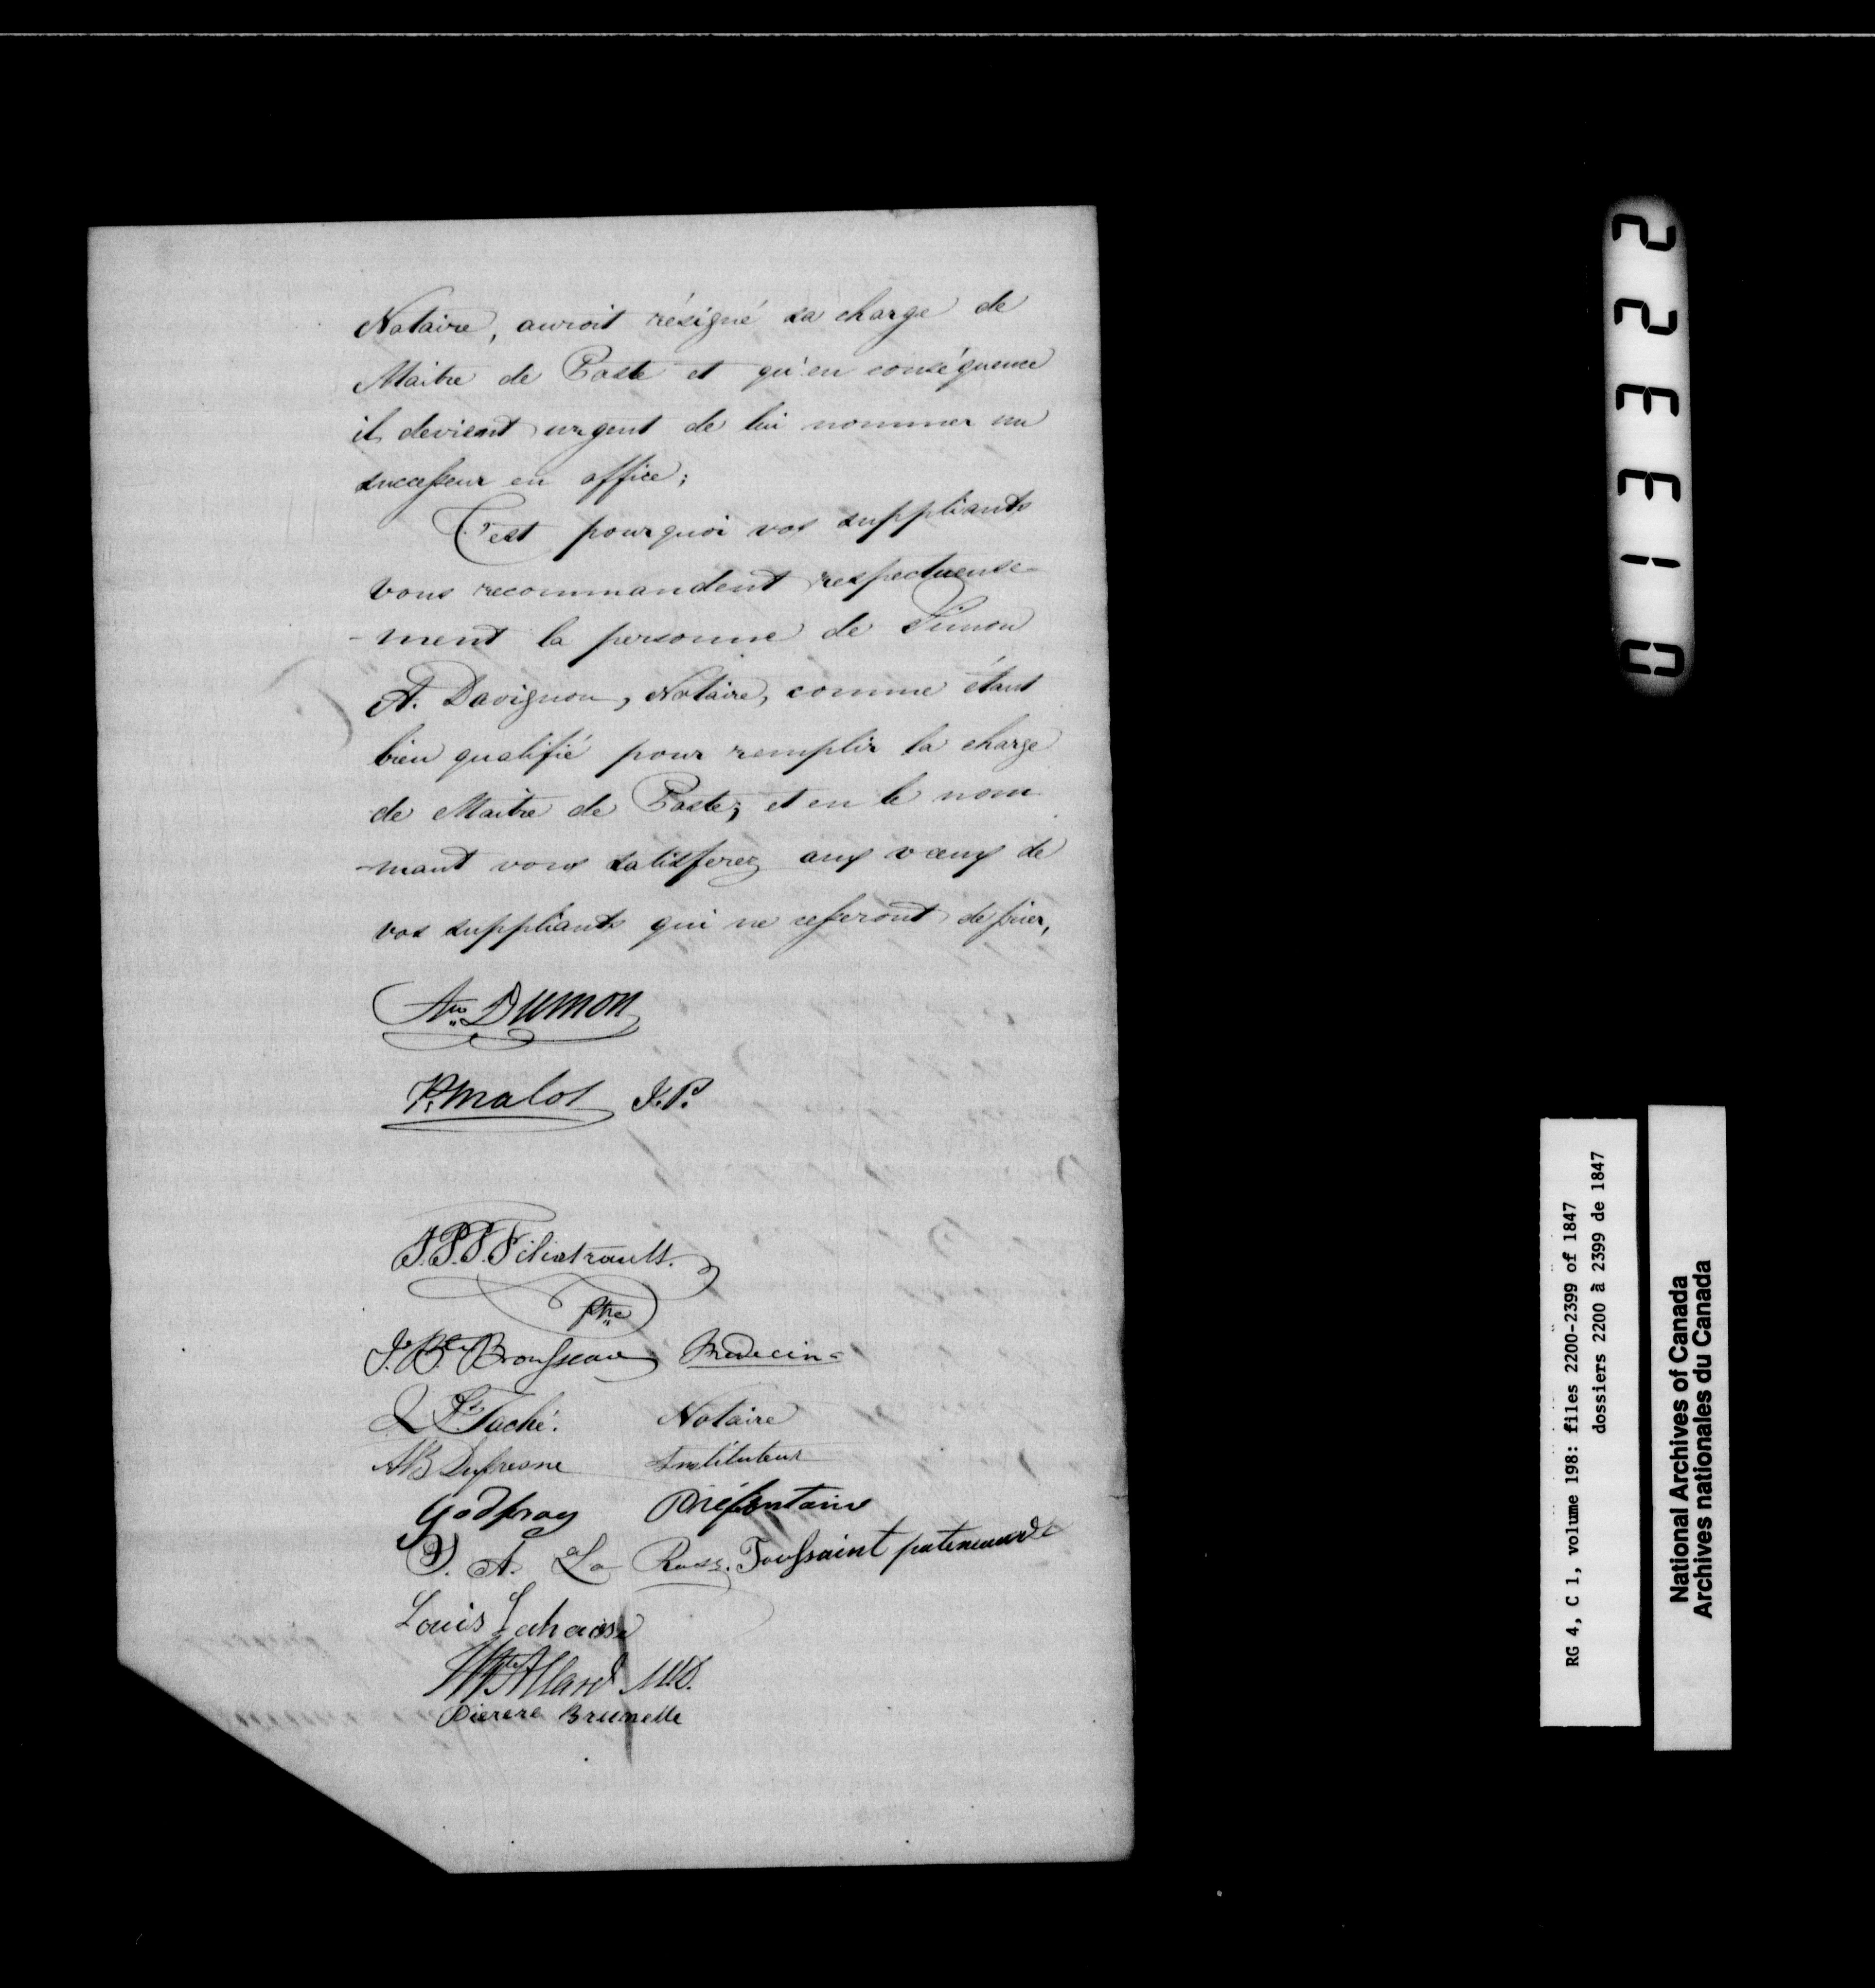 Notaire, auroit résigné sa charge de
Maitre de Poste et qu'en conséquence
il devient urgent de lui nommer un
successeur en office;
C'est pourquoi vos suppliants
vous recommandent respectueuse-
-ment la personne de Simon
A. Davignon, Notaire, comme étant
bien qualifié pour remplir la charge
de Maitre de Poste; et en le nom
-mant vous satisferez aux vœux de
vos suppliants qui ne cesseront de prier,
Dumon
P. Malot J.P.
J.P.S. Filiatrault.
ptre
J. Bte Brousseau Médecin
L Taché. Notaire
AB Dufresne Instituteur
Godfroy Préfontaine
A. La Toussaint patenaude
Louis Lahaise
Allard M.D.
Pierere Brunelle
013322
RG 4, C 1, volume 198: files 2200-2399 of 1847
dossiers 2200 à 2399 de 1847
National Archives of Canada
Archives nationales du Canada